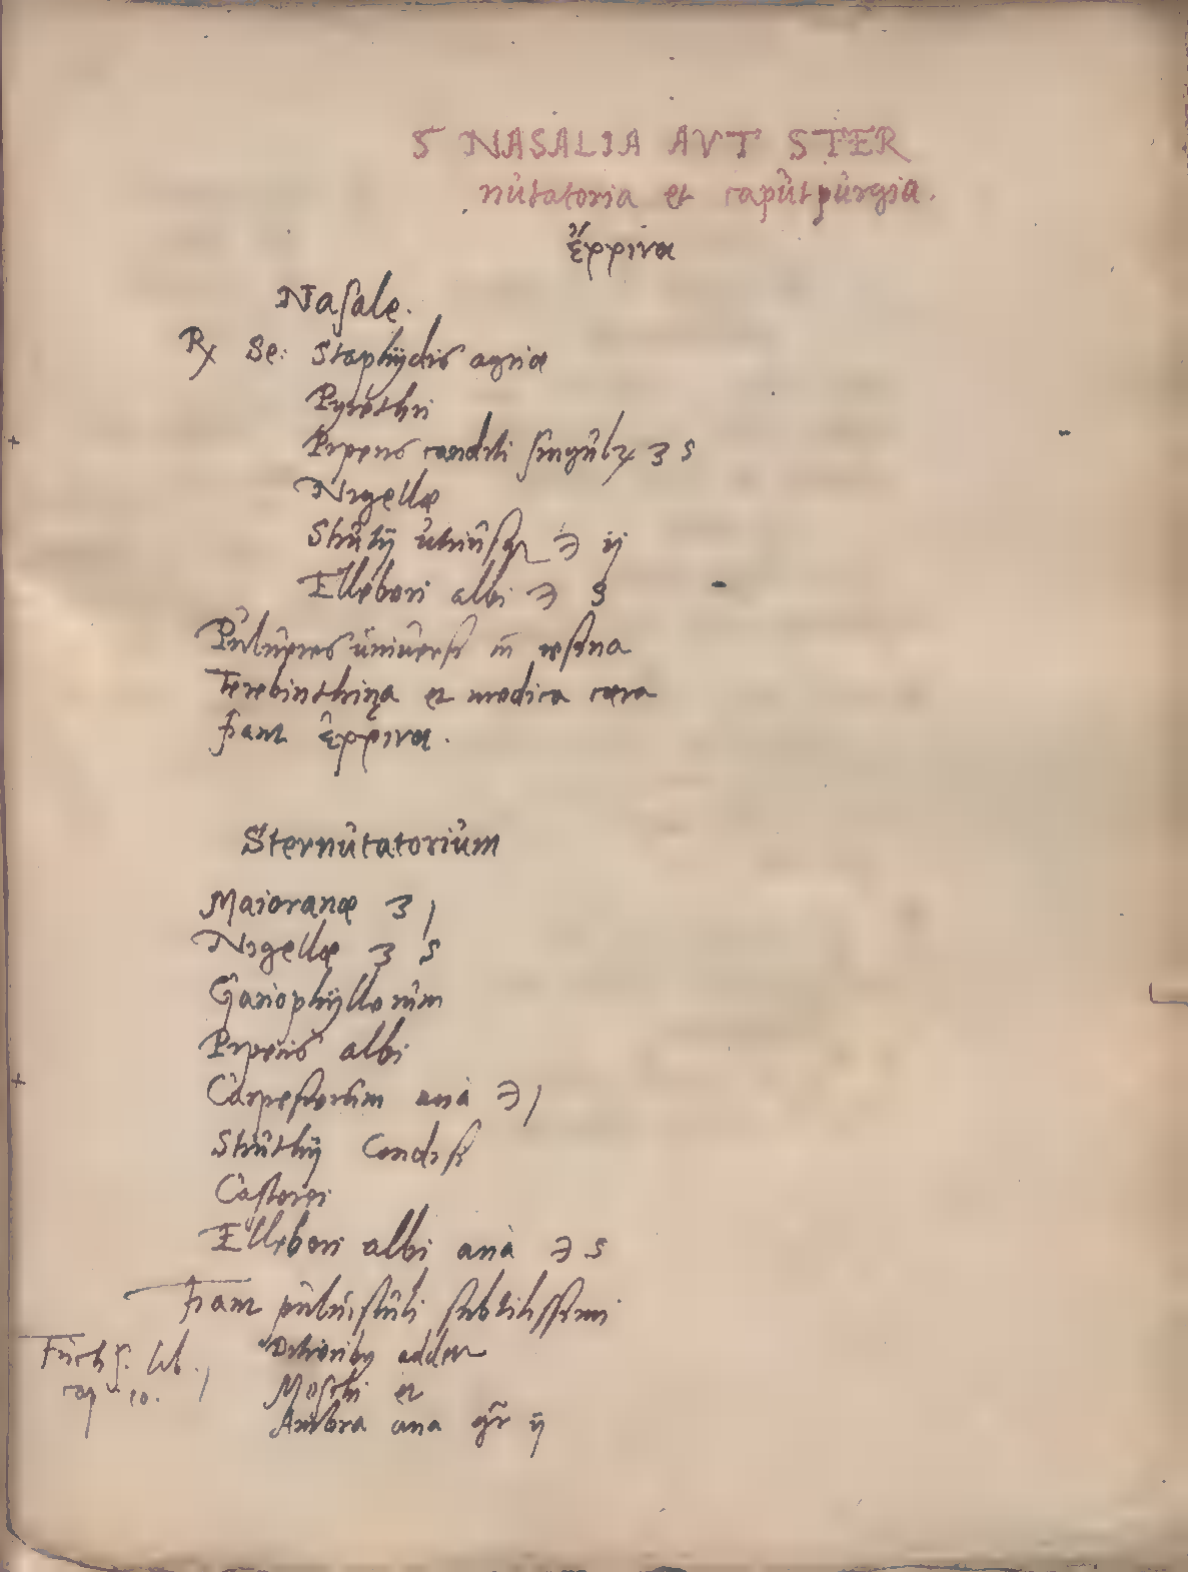 5 NASALIA AVT STER
nutatoria et caputpurgia.
ἔρρινα
Nasale.
℞ Se: Staphydis agriæ
Pyrethri
Piperis candidi singul ʒ s
Nigellæ
Strutij utriusq ℈ ij
Ellebori albi ℈ s
Pulueres uniuersi resina
Terebinthina et modica cæra
fiant ἔρρινα.
Sternutatorium
Maioranæ ʒ j
Nigellæ ʒ s
Gariophyllorum
Piperis albi
Carpesiorum ana ℈ j
Struthij Condisi
Castorei
Ellebori albi ana ℈ s
Fiant pulvisculi subtilissimi
Fuchs. lib. j
cap 10.
adder
Moschi et
Ambra ana gr ij